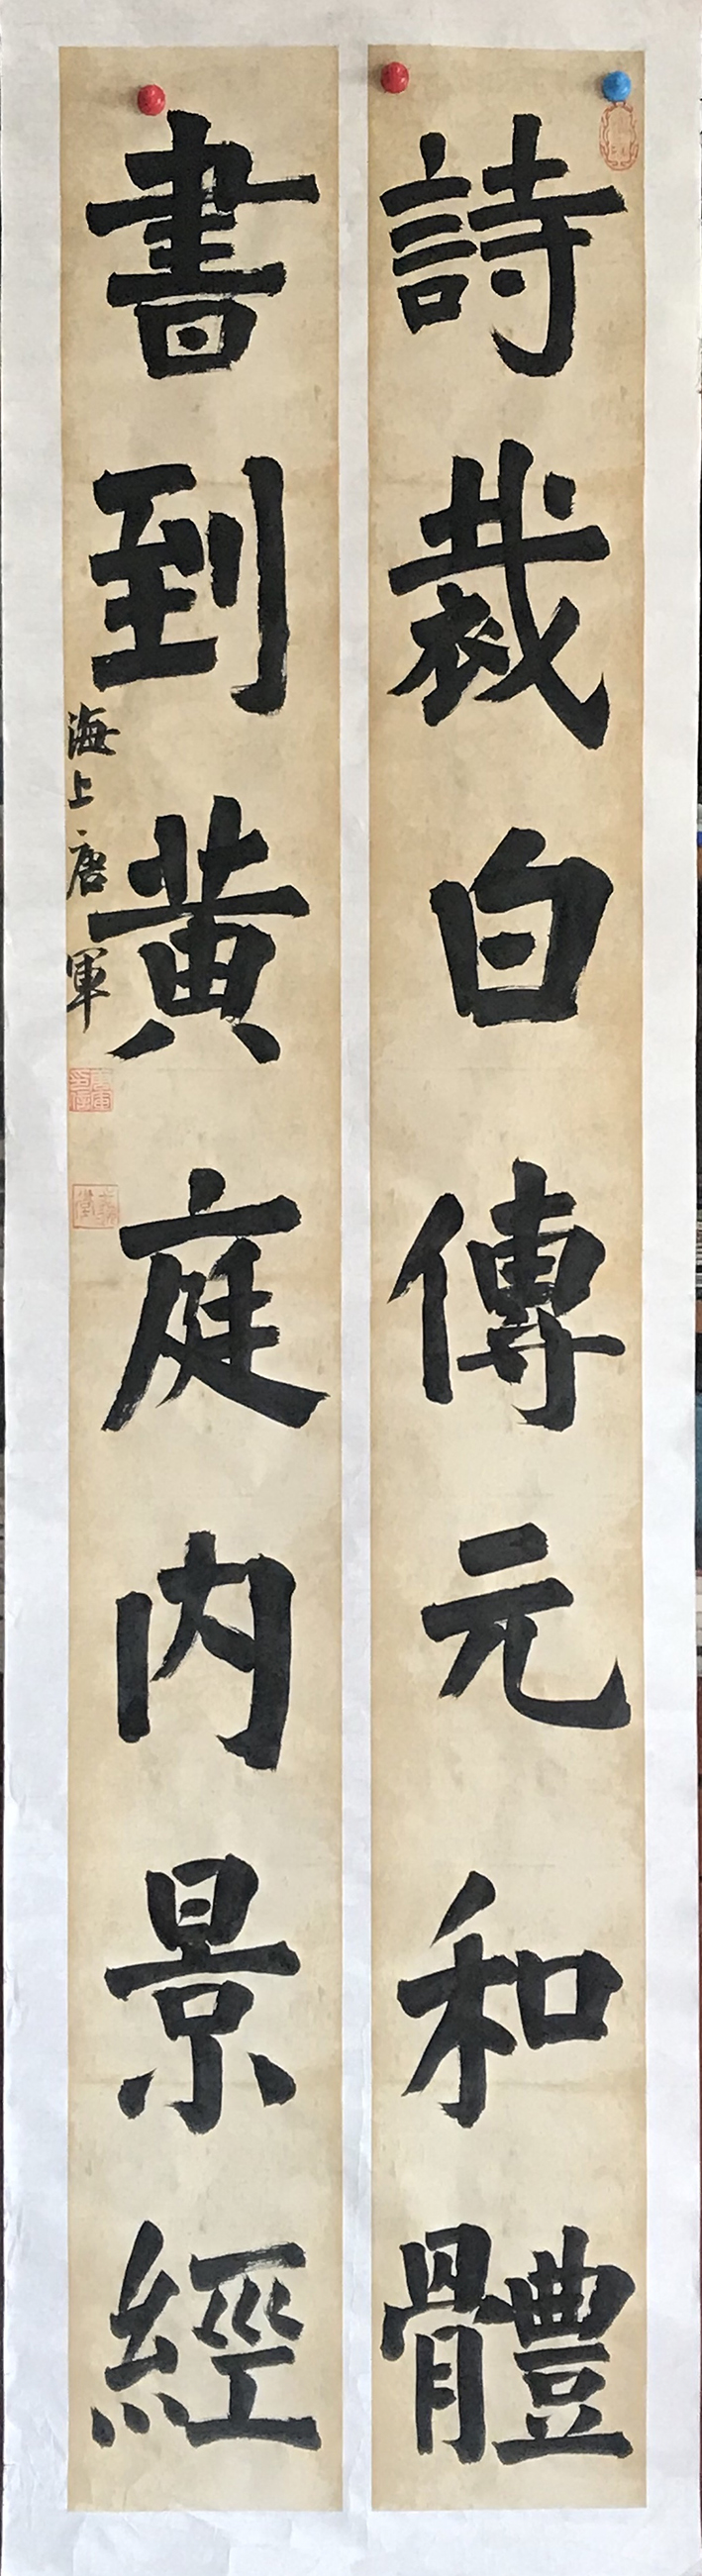 詩裁白傅元和體
書到黃庭内景經
海上唐軍